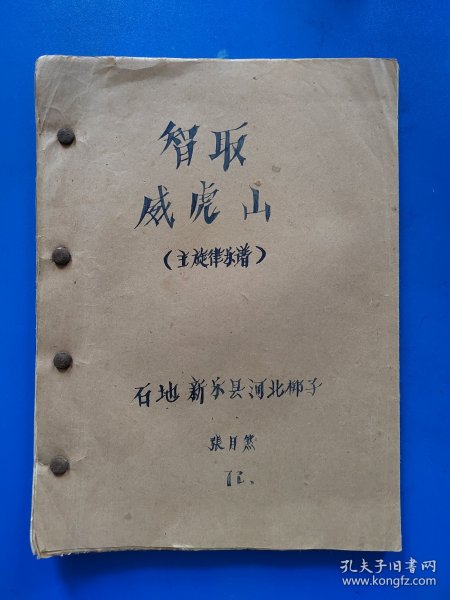 智取
威虎山
(主旋律乐谱)
石地 新乐县河北梆子
張月然
72.
孔夫子旧书网
www.kongfz.com